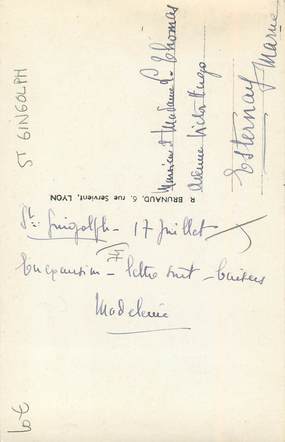 ST GINGOLPH
Monsieur & Madame L. Thomas
Avenue Victor Hugo
Esternay
Marne
R. BRUNAUD, 6, rue Servient, LYON
St. Gingolph - 17 Juillet
lettre suit - Baisers
Madeleine